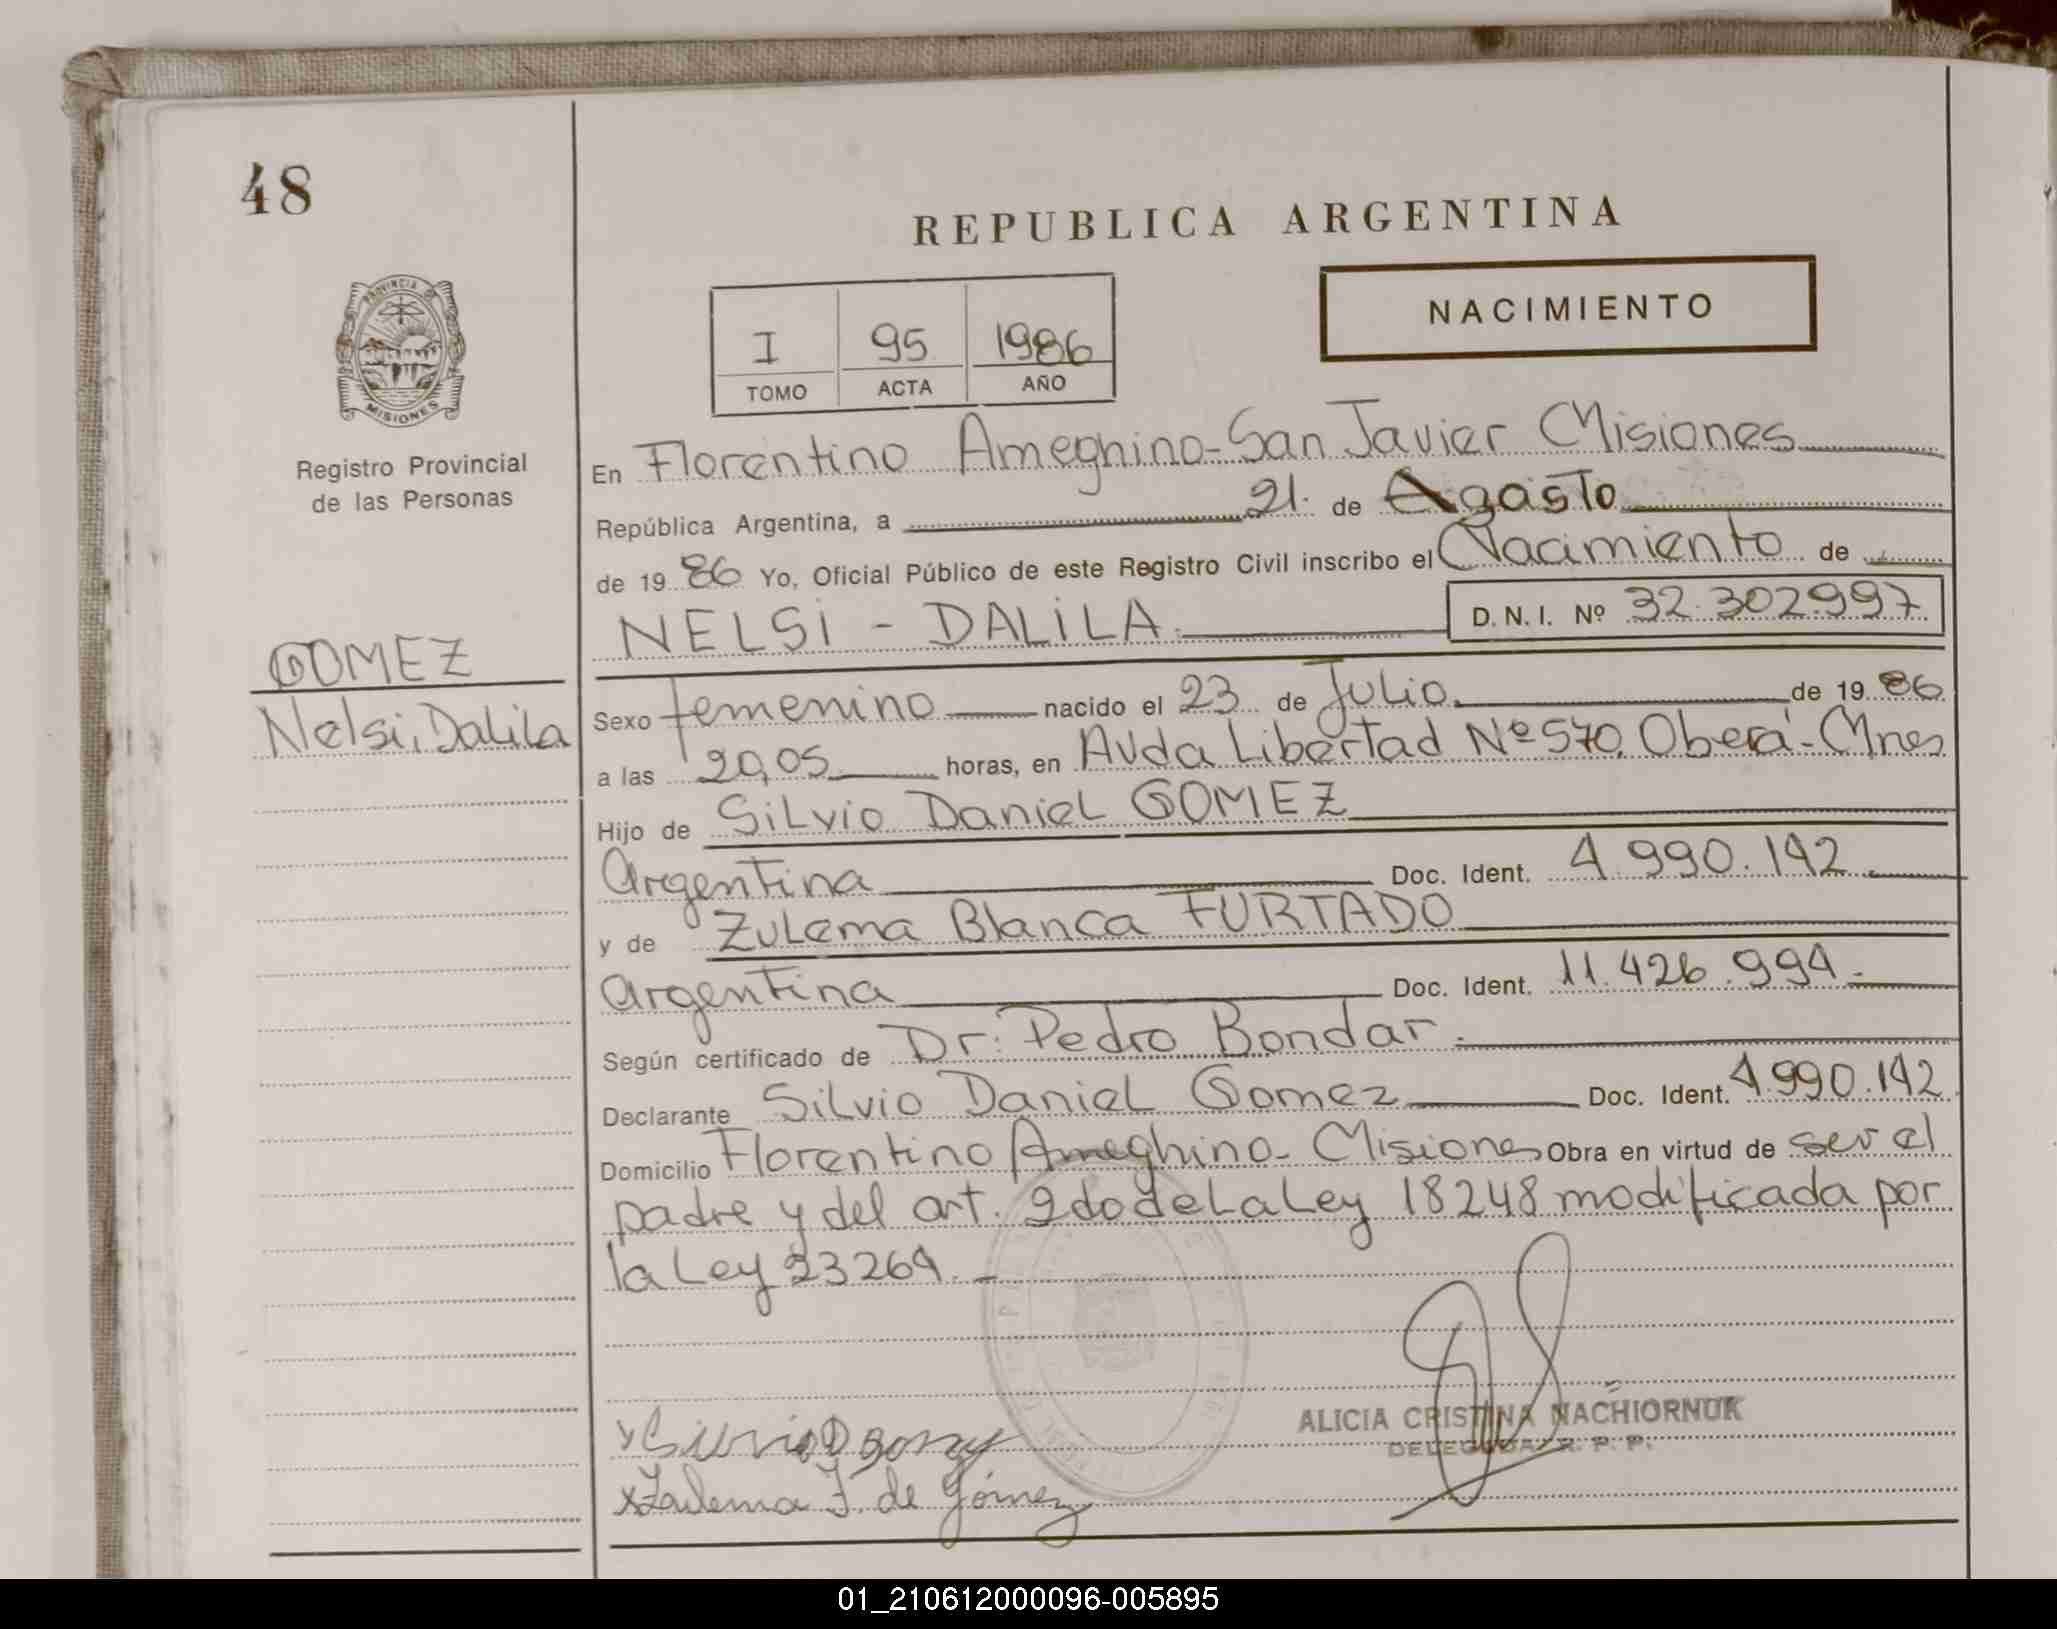 48
REPUBLICA ARGENTINA
NACIMIENTO
I 95 1986
TOMO ACTA AÑO
PROVINCIA DE
MISIONES
Registro Provincial
de las Personas
GOMEZ
Nelsi, Dalila
En Florentino Ameghino-San Javier Misiones
República Argentina, a 21. de Agosto
de 19 86 Yo, Oficial Público de este Registro Civil inscribo el Nacimiento de
NELSi - DALiLA. D. N. I. Nº 32.302.997
Sexo femenino nacido el 23 de Julio. de 19 86
a las 20,05 horas, en Avda Libertad Nº 570. Oberá - Mnes
Hijo de Silvio Daniel GOMEZ
Argentina Doc. Ident. 4.990.142.
y de Zulema Blanca FURTADO
argentina Doc. Ident. 11.426.994.
Según certificado de Dr: Pedro Bondar.
Declarante Silvio Daniel Gomez Doc. Ident. 4.990.142
Domicilio Florentino Ameghino - Misiones Obra en virtud de ser el
padre y del art. 2do de La Ley 18248 modificada por
la Ley 23264. -
x Silvio D gomez
x Zulema F. de Gómez
ALICIA CRISTINA NACHIORNUK
DELEGADA R. P. P.
01_210612000096-005895